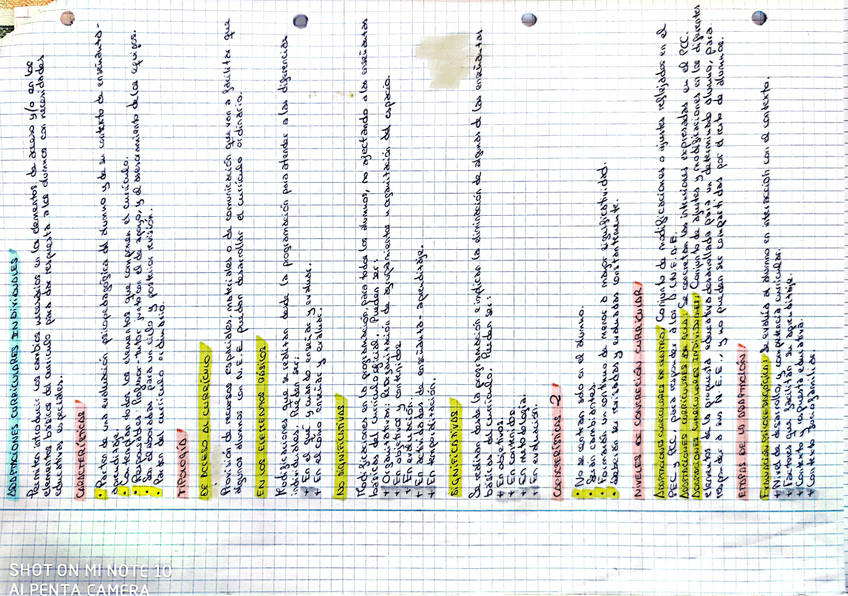 ADAPTACIONES CURRICULARES INDIVIDUALES
Permiten introducir los cambios necesarios en los elementos de acceso y/o en los
elementos básicos del currículo para dar respuesta a los alumnos con necesidades
educativas especiales.
CARACTERÍSTICAS
• Parten de una evaluación psicopedagógica del alumno y de su contexto de enseñanza-
aprendizaje.
• Contempla todos los elementos que componen el currículo.
• Responsables Profesor-tutor junto con el de apoyo, y el asesoramiento de los equipos.
• Son elaboradas para un ciclo y posterior revisión.
• Parten del currículo ordinario.
TIPOLOGÍA
DE ACCESO AL CURRÍCULO
Provisión de recursos especiales, materiales o de comunicación que van a facilitar que
algunos alumnos con N.E.E. puedan desarrollar el currículo ordinario.
EN LOS ELEMENTOS BÁSICOS
Modificaciones que se realizan desde la programación para atender a las diferencias
individuales. Pueden ser:
+ En el qué y cuándo enseñar y evaluar.
+ En el cómo enseñar y evaluar.
NO SIGNIFICATIVAS
Modificaciones en la programación para todos los alumnos, no afectando a las enseñanzas
básicas del currículo oficial. Pueden ser:
+ Organizativos: Organización de agrupamientos y organización del espacio.
+ En objetivos y contenidos.
+ En evaluación.
+ En actividades de enseñanza-aprendizaje.
+ En temporalización.
SIGNIFICATIVAS
Se realizan desde la programación e indican la eliminación de algunas de las enseñanzas
básicas del currículo. Pueden ser:
+ En objetivos.
+ En contenidos.
+ En metodología.
+ En evaluación.
CARACTERÍSTICAS 2
• No se centran solo en el alumno.
• Serán cambiantes.
• Formarán un continuo de menor a mayor significatividad.
• Deberán ser revisadas y evaluadas constantemente.
NIVELES DE CONCRECIÓN CURRICULAR
ADAPTACIONES CURRICULARES DE CENTRO/ Conjunto de modificaciones o ajustes reflejados en el
PEC y PCC, para responder a las N.E.E.
ADAPTACIONES CURRICULARES DE AULA/ Se concretan las intenciones expresadas en el PCC.
ADAPTACIONES CURRICULARES INDIVIDUALES/ Conjunto de ajustes y modificaciones en los diferentes
elementos de la propuesta educativa desarrollada para un determinado alumno, para
responder a sus N.E.E., y no pueden ser compartidas por el resto de alumnos.
ETAPAS DE LA ADAPTACIÓN/
EVALUACIÓN PSICOPEDAGÓGICA/ evalúa al alumno en interacción con el contexto.
+ Nivel de desarrollo, y competencia curricular.
+ Factores que facilitan su aprendizaje.
+ Contexto y respuesta educativa.
+ Contexto sociofamiliar.
SHOT ON MI NOTE 10
AI PENTA CAMERA